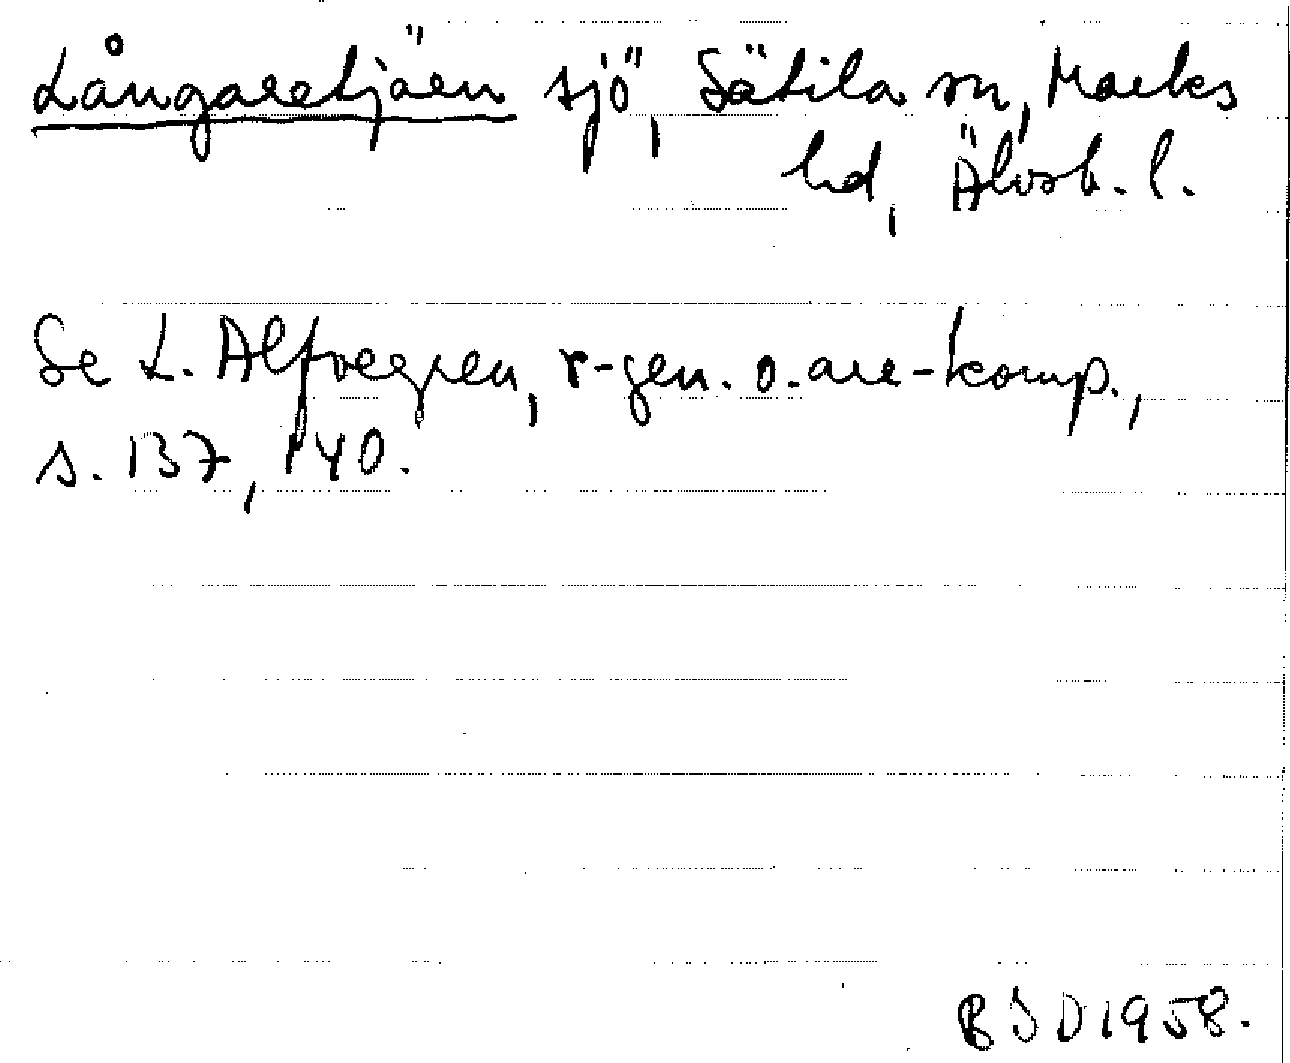 Långaretjärn sjö, Sätila sn, Marks
hd, Älvsb. l.
Se L. Alfvegren, r-gen. o. are-komp.,
s. 137, 140.
BSD 1958.